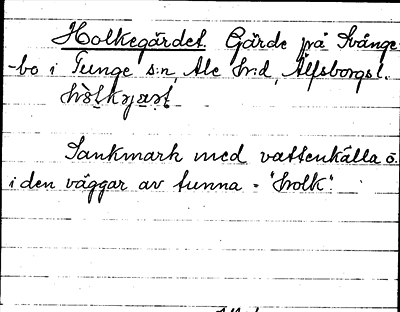 Holkegärdet. Gärde på Svänge-
-bo i Tunge s:n, Ale h:d, Älfsborgs l.
Sankmark med vattenkälla o.
i den väggar av tunna = "holk".